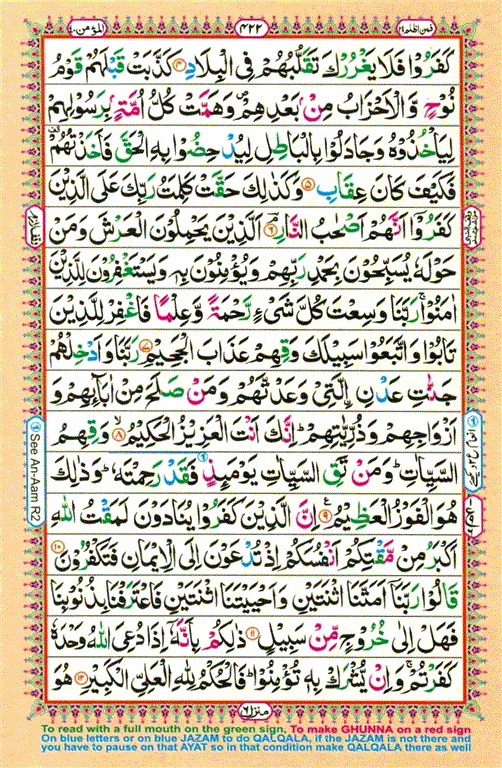 فمن اظلم ٢٤
٤٢٢
المؤمن ٤٠
كَفَرُوْا فَلَا يَغْرُرْكَ تَقَلُّبُهُمْ فِى الْبِلَادِ ۝٤ كَذَّبَتْ قَبْلَهُمْ قَوْمُ
نُوْحٍ وَّالْاَحْزَابُ مِنْۢ بَعْدِهِمْ ۪ وَهَمَّتْ كُلُّ اُمَّةٍۭ بِرَسُوْلِهِمْ
لِيَاْخُذُوْهُ وَجٰدَلُوْا بِالْبَاطِلِ لِيُدْحِضُوْا بِهِ الْحَقَّ فَاَخَذْتُهُمْ
فَكَيْفَ كَانَ عِقَابِ ۝٥ وَكَذٰلِكَ حَقَّتْ كَلِمَتُ رَبِّكَ عَلَى الَّذِيْنَ
كَفَرُوْۤا اَنَّهُمْ اَصْحٰبُ النَّارِ ۝٦ اَلَّذِيْنَ يَحْمِلُوْنَ الْعَرْشَ وَمَنْ
حَوْلَهٗ يُسَبِّحُوْنَ بِحَمْدِ رَبِّهِمْ وَيُؤْمِنُوْنَ بِهٖ وَيَسْتَغْفِرُوْنَ لِلَّذِيْنَ
اٰمَنُوْا ۚ رَبَّنَا وَسِعْتَ كُلَّ شَىْءٍ رَّحْمَةً وَّعِلْمًا فَاغْفِرْ لِلَّذِيْنَ
تَابُوْا وَاتَّبَعُوْا سَبِيْلَكَ وَقِهِمْ عَذَابَ الْجَحِيْمِ ۝٧ رَبَّنَا وَاَدْخِلْهُمْ
جَنّٰتِ عَدْنِ ۨالَّتِىْ وَعَدْتَّهُمْ وَمَنْ صَلَحَ مِنْ اٰبَآئِهِمْ وَ
اَزْوَاجِهِمْ وَذُرِّيّٰتِهِمْ ؕ اِنَّكَ اَنْتَ الْعَزِيْزُ الْحَكِيْمُ ۝٨ وَقِهِمُ
السَّيِّاٰتِ ؕ وَمَنْ تَقِ السَّيِّاٰتِ يَوْمَئِذٍ فَقَدْ رَحِمْتَهٗ ؕ وَذٰلِكَ
هُوَ الْفَوْزُ الْعَظِيْمُ ۝٩ اِنَّ الَّذِيْنَ كَفَرُوْا يُنَادَوْنَ لَمَقْتُ اللّٰهِ
اَكْبَرُ مِنْ مَّقْتِكُمْ اَنْفُسَكُمْ اِذْ تُدْعَوْنَ اِلَى الْاِيْمَانِ فَتَكْفُرُوْنَ ۝١٠
قَالُوْا رَبَّنَاۤ اَمَتَّنَا اثْنَتَيْنِ وَاَحْيَيْتَنَا اثْنَتَيْنِ فَاعْتَرَفْنَا بِذُنُوْبِنَا
فَهَلْ اِلٰى خُرُوْجٍ مِّنْ سَبِيْلٍ ۝١١ ذٰلِكُمْ بِاَنَّهٗۤ اِذَا دُعِىَ اللّٰهُ وَحْدَهٗ
كَفَرْتُمْ ۚ وَاِنْ يُّشْرَكْ بِهٖ تُؤْمِنُوْا ؕ فَالْحُكْمُ لِلّٰهِ الْعَلِىِّ الْكَبِيْرِ ۝١٢ هُوَ
See An-Aam R2
منزل ٦
To read with a full mouth on the green sign, To make GHUNNA on a red sign
On blue letters or on blue JAZAM to do QALQALA, if the JAZAM is not there and
you have to pause on that AYAT so in that condition make QALQALA there as well